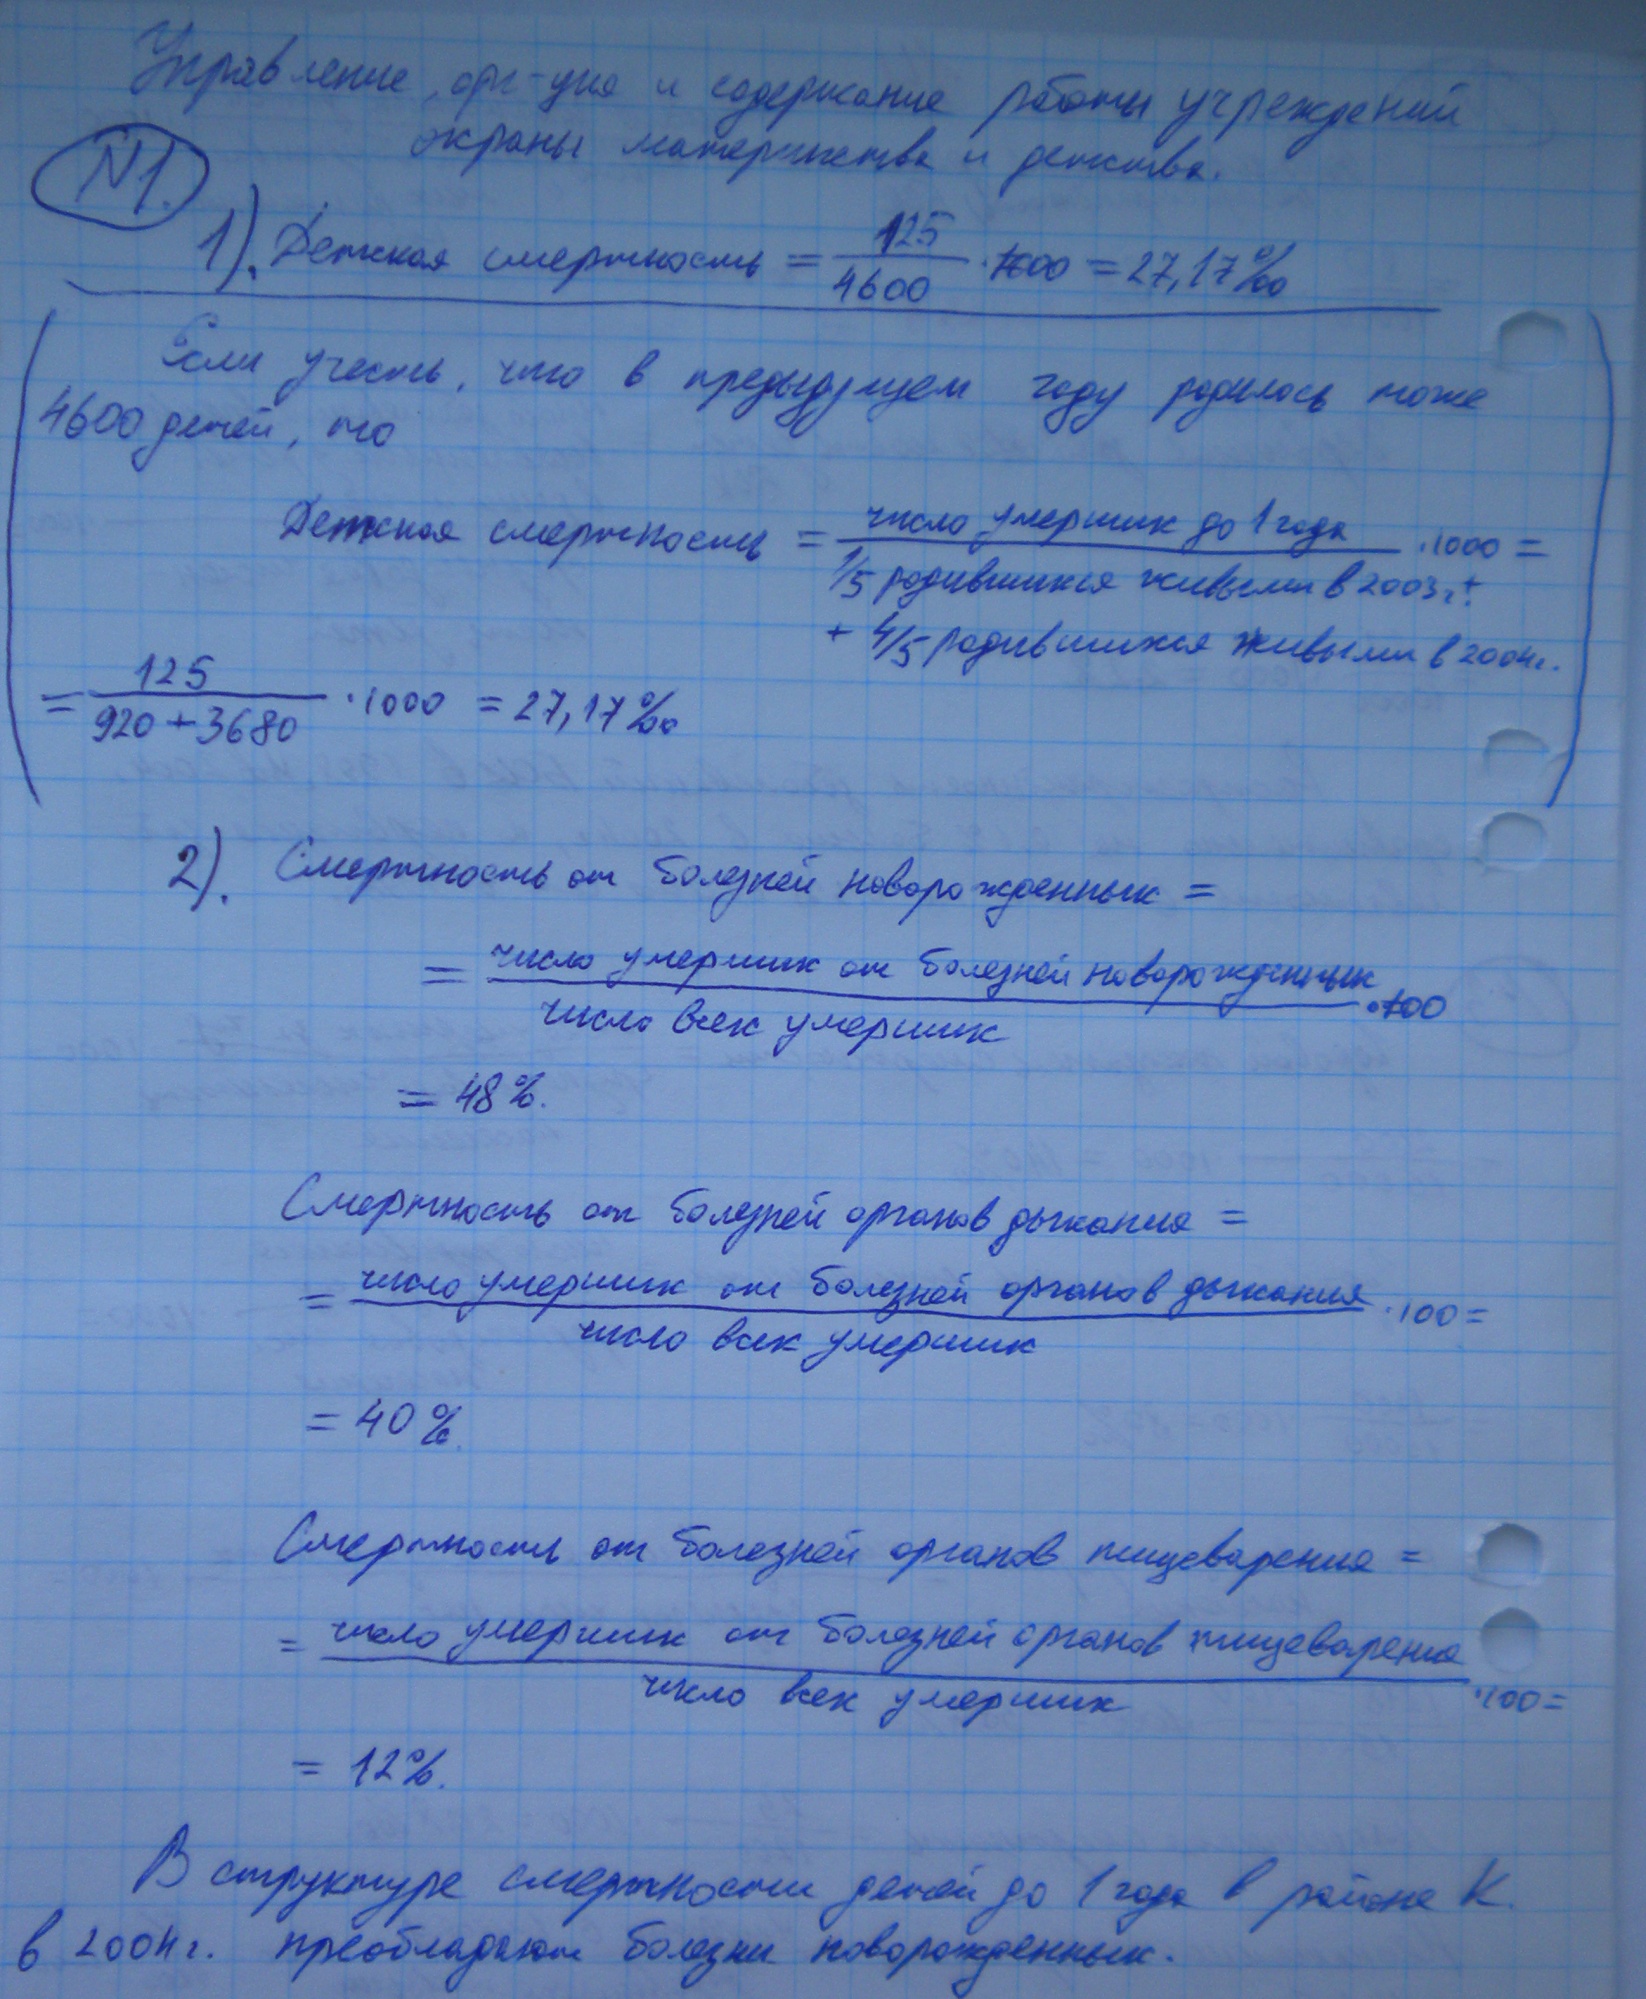 Управление, орг-ция и содержание работы учреждений
охраны материнства и детства.
N1.
1). Детская смертность = 125/4600 · 1000 = 27,17‰
Если учесть, что в предыдущем году родилось тоже
4600 детей, то
Детская смертность = число умерших до 1 года · 1000 =
1/5 родившихся живыми в 2003г. +
+ 4/5 родившихся живыми в 2004г.
= 125/(920 + 3680) · 1000 = 27,17‰
2). Смертность от болезней новорожденных =
= число умерших от болезней новорожденных · 100
число всех умерших
= 48%.
Смертность от болезней органов дыхания =
= число умерших от болезней органов дыхания · 100 =
число всех умерших
= 40%.
Смертность от болезней органов пищеварения =
= число умерших от болезней органов пищеварения
число всех умерших · 100 =
= 12%.
В структуре смертности детей до 1 года в районе К.
в 2004г. преобладают болезни новорожденных.